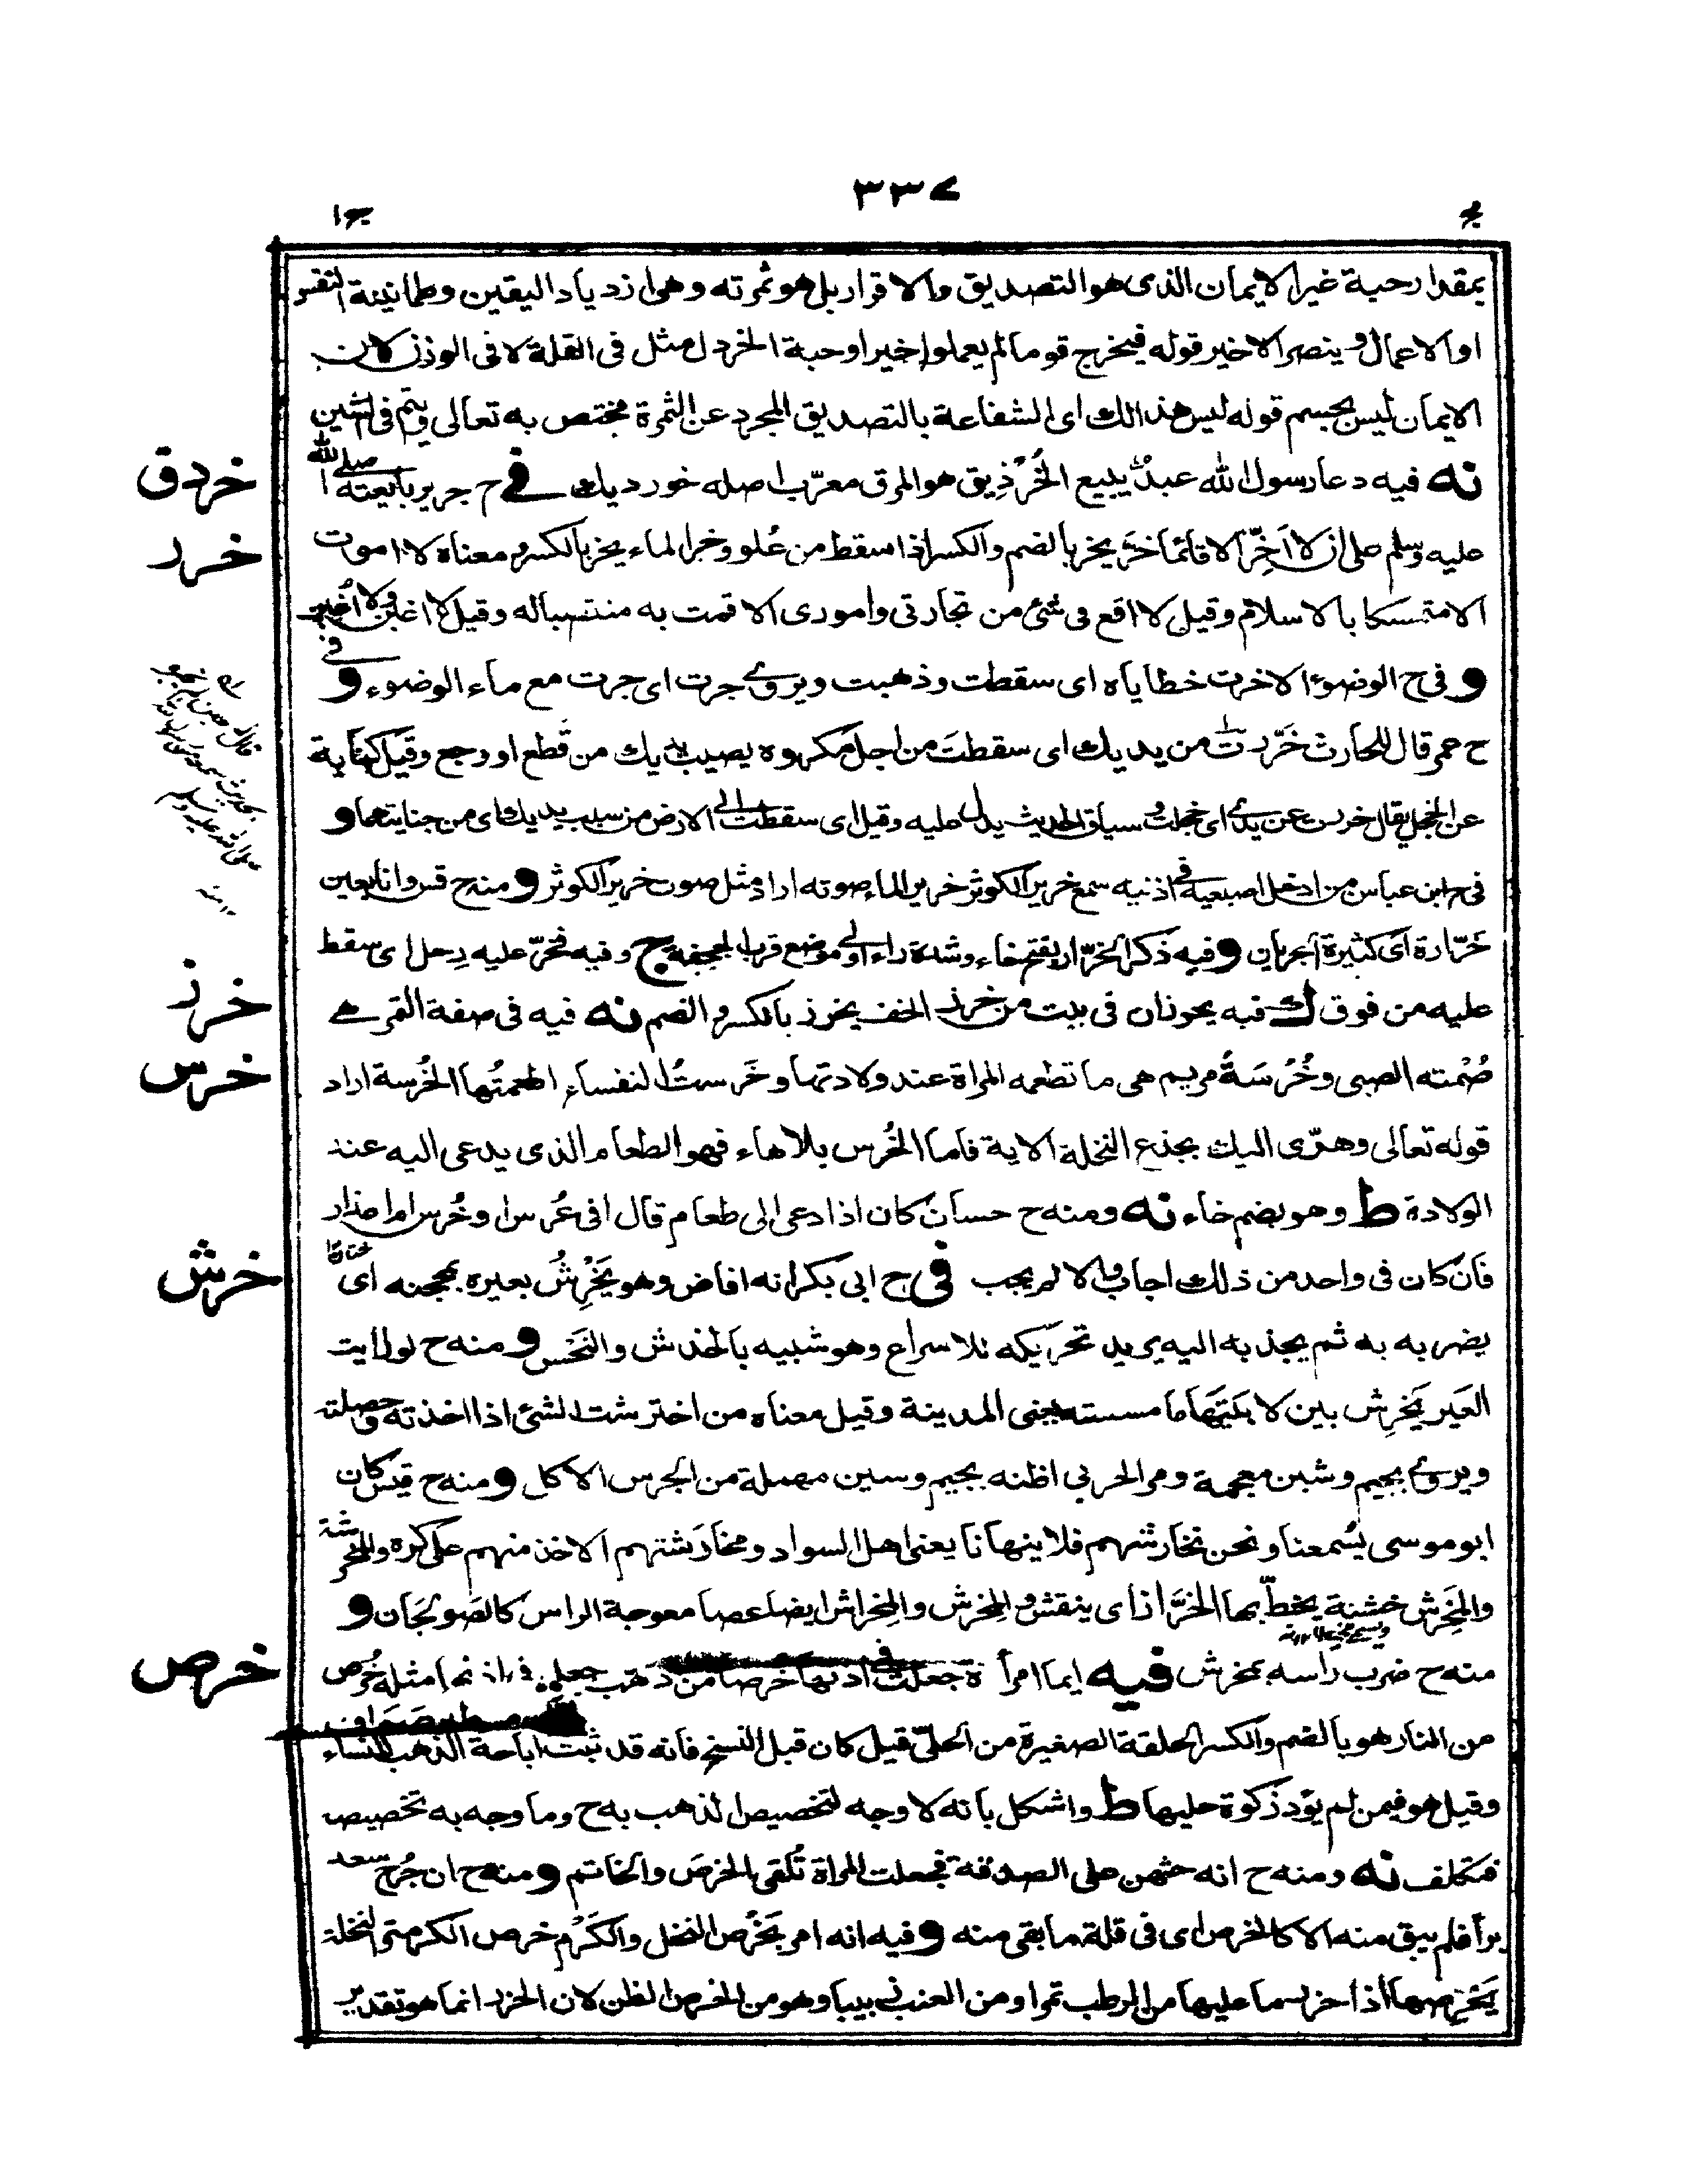 ٣٣٧
ج ١
بمقدار حبة غير الايمان الذى هو التصديق والاقرار بل هو ثمرته وهى ازدياد اليقين وطمانينة النفس
او الاعمال وينصر الاخير قوله فيخرج قوما لم يعملوا خيرا وحبة الخردل مثل فى القلة لا فى الوزن لان
الايمان ليس بجسم قوله ليس هذا لك اى الشفاعة بالتصديق المجرد عن الثمرة مختص به تعالى ويتم فى الشين
خردق
نه فيه دعا رسول الله عبدٌ يبيع الخُرْذِيق هو المرق معرّب اصله خورديك فى ح جرير بايعته صلى الله
خرر
عليه وسلم على ان لا اَخِرّ الا قائما خرّ يخر بالضم والكسر اذا سقط من علو وخر الماء يخر بالكسر ومعناه لا اموت
الا متمسكا بالاسلام وقيل لا اقع فى شئ من تجارتى وامورى الا قمت به منتصبا له وقيل لا اغبن ولا اُغبن
و فى ح الوضوء الا خرت خطاياه اى سقطت وذهبت ويروى جرت اى جرت مع ماء الوضوء و فى
ح عمر قال للحارث خَرَرْتَ من يديك اى سقطتَ من اجل مكروه يصيب يديك من قطع او وجع وقيل كناية
عن الخجل يقال خررت عن يدى اى خجلت وسياق الحديث يدل عليه وقيل اى سقطت الى الارض من سبب يديك اى من جنايتهما و
فى ح ابن عباس من ادخل اصبعيه فى اذنيه سمع خرير الكوثر خرير الماء صوته اراد مثل صوت خرير الكوثر و منه ح قس وانا بعين
خَرّارة اى كثيرة الجريان و فيه ذكر الخرّار بفتح خاء وشدة راء اولى موضع قرب الجحفة ج وفيه فخرّ عليه رجل اى سقط
خرز
عليه من فوق ك فيه يحوزان فى بيت من خرز الخف يخرز بالكسر والضم نه فيه فى صفة التمر هى
خرس
صُمْتة الصبى وخُرْسَةُ مريم هى ما تطعمه المراة عند ولادتها وخَرستُ النفساء اطعمتُها الخُرسة اراد
قوله تعالى وهزّى اليك بجذع النخلة الاية فاما الخُرس بلا هاء فهو الطعام الذى يدعى اليه عند
الولادة ط وهو بضم خاء نه ومنه ح حسان كان اذا دعى الى طعام قال افى عُرس او خُرس ام اعذار
خرش
فان كان فى واحد من ذلك اجاب والا لم يجب فى ح ابى بكر انه افاض وهو يَخْرِشُ بعيره بمحجنه اى
يضربه به ثم يجذبه اليه يريد تحريكه للاسراع وهو شبيه بالخدش والنخس و منه ح لو رايت
العَير تَخرِش بين لابتيها ما مسسته يعنى المدينة وقيل معناه من اخترشت الشئ اذا اخذته وحصلته
ويروى بجيم وشين معجمة ومر الحربى اظنه بجيم وسين مهملة من الجرس الاكل و منه ح قيس كان
ابو موسى يُسمعنا ونحن نخارشهم فلا ينهانا يعنى اهل السواد ومخارشتهم الاخذ منهم على كره والمخرشة
والمِخرش خشبة يخطّ بها الخرَّاز اى ينقش والمِخرش والمِخراش ايضا عصا معوجة الراس كالصَولجَان و
خرص
منه ح ضرب راسه بمخرش فيه ايما امرأة جعلت فى اذنها خرصا من ذهب جعل فى اذنها مثله خُرص
من النار هو بالضم والكسر الحلقة الصغيرة من الحلىّ قيل كان قبل النسخ فانه قد ثبت اباحة الذهب للنساء
وقيل هو فيمن لم يؤد زكوة حليها ط واشكل بانه لا وجه لتخصيص الذهب به ح وما وجه به تخصيص
فمتكلف نه ومنه ح انه حثهن على الصدقة فجعلت المراة تُلقى الخرصَ والخاتم و منه ح ان جُرح سعد
برأ فلم يبق منه الا كالخرص اى فى قلة ما بقى منه و فيه انه امر بخَرْص النخل والكَرْم خرص الكرمة والنخلة
يَخرصها اذا حزر ما عليها من الرطب تمرا ومن العنب زبيبا وهو من الخرص الظن لان الحزر انما هو تقدير